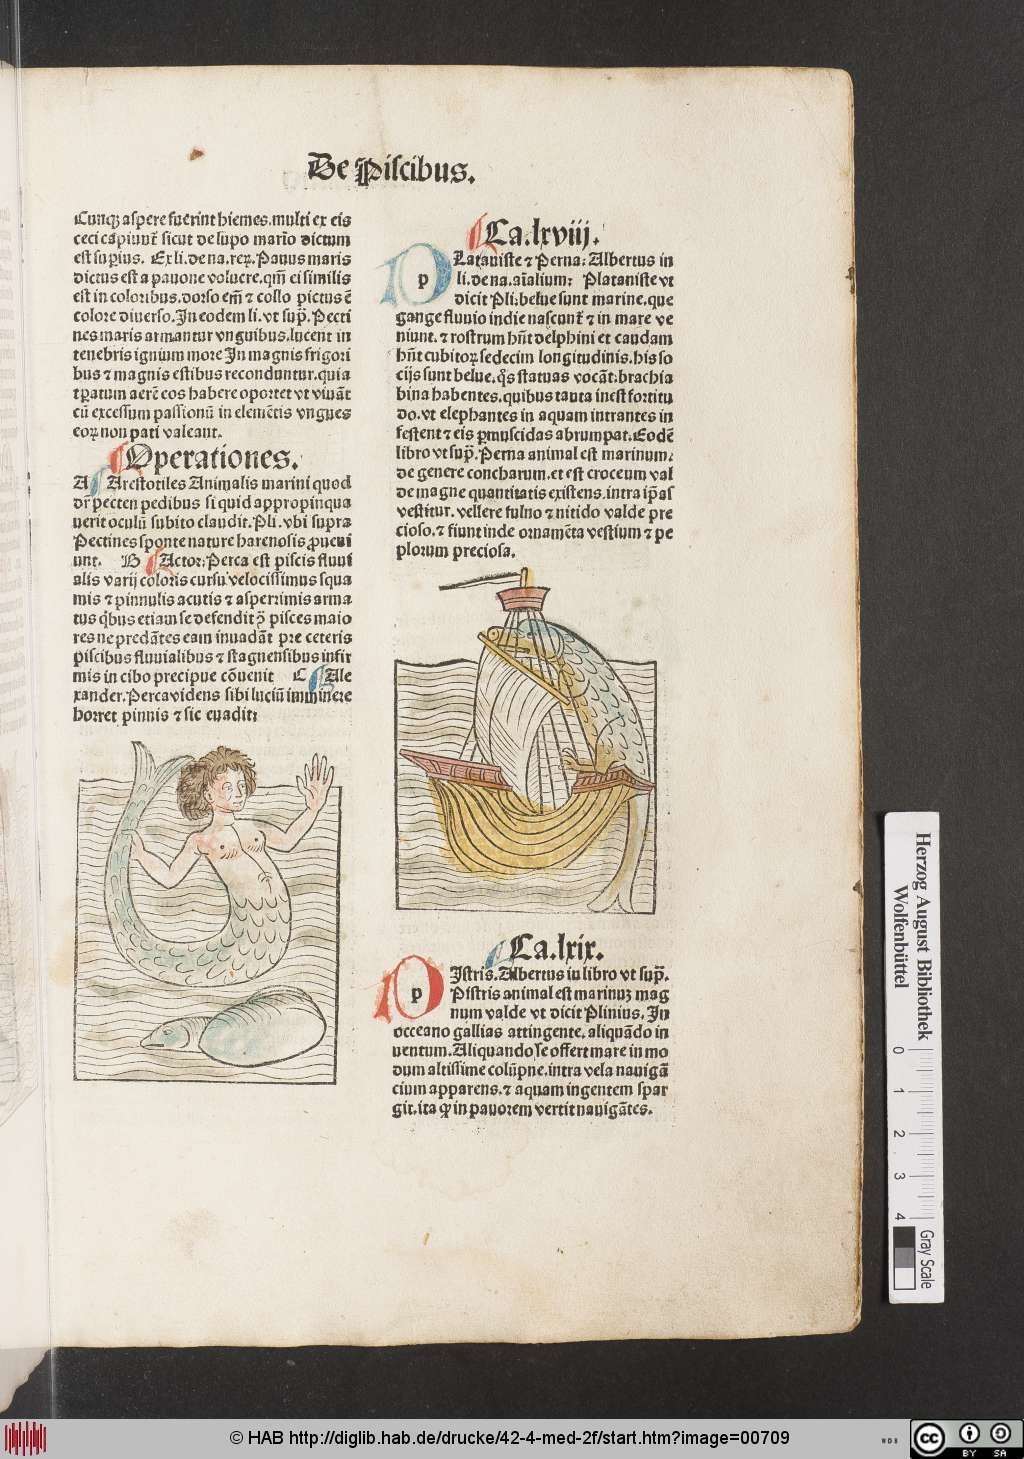 De Piscibus.
Cunqꝫ aspere fuerint hiemes. multi ex eis
ceci capiunt᷑ sicut de lupo mario dictum
est supius. Ex li. de na. reꝝ. Pauus maris
dictus est a pauone volucre. qm̄ ei similis
est in coloribus. dorso em̄ ⁊ collo pictus ē
colore diuerso. In eodem li. vt sup̄. Pecti
nes maris armantur vnguibus. lucent in
tenebris ignium more In magnis frigori
bus ⁊ magnis estibus reconduntur. quia
tꝑatum aerē eos habere oportet vt viuāt
cū excessum passionū in elemētis vngues
eoꝝ non pati valeaut.
Operationes.
A Arestotiles Animalis marini quod
dr̄ pecten pedibus si quid appropinqua
uerit oculū subito claudit. Pli. vbi supra
Pectines sponte nature harenosis ꝓueni
unt. B Actor: Perca est piscis fluui
alis varij coloris cursu velocissimus squa
mis ⁊ pinnulis acutis ⁊ asperrimis arma
tus qͥbus etiam se defendit ꝯ pisces maio
res ne predātes eam inuadāt pre ceteris
piscibus fluuialibus ⁊ stagnensibus infir
mis in cibo precipue cōuenit C Ale
xander. Perca videns sibi luciū imminere
horret pinnis ⁊ sic euadit:
Ca. lxviij.
p Lataniste ⁊ Perna: Albertus in
li. de na. aīalium: Plataniste vt
dicit Pli: belue sunt marine, que
gange fluuio indie nascunt᷑ ⁊ in mare ve
niunt. ⁊ rostrum hn̄t delphini et caudam
hn̄t cubitoꝝ sedecim longitudinis. his so
cijs sunt belue. qͣs statuas vocāt. brachia
bina habentes. quibus tauta inest fortitu
do. vt elephantes in aquam intrantes in
festent ⁊ eis ꝓmuscidas abrumpat. Eodē
libro vt sup̄. Perna animal est marinum:
de genere concharum. et est croceum val
de magne quantitatis existens. intra ip̄as
vestitur. vellere fuluo ⁊ nitido valde pre
cioso. ⁊ fiunt inde ornamēta vestium ⁊ pe
plorum preciosa.
Ca. lxix.
p Istris. Albertus in libro vt sup̄.
Pistris animal est marinuꝫ mag
num valde vt dicit Plinius. In
occeano gallias attingente. aliquādo in
uentum. Aliquando se offert mare in mo
dum altissime colūpne. intra vela nauigā
cium apparens. ⁊ aquam ingentem spar
git. ita ꝙ in pauorem vertit nauigātes.
Herzog August Bibliothek
Wolfenbüttel
0 1 2 3 4
Gray Scale
© HAB http://diglib.hab.de/drucke/42-4-med-2f/start.htm?image=00709
WDB
cc
BY SA